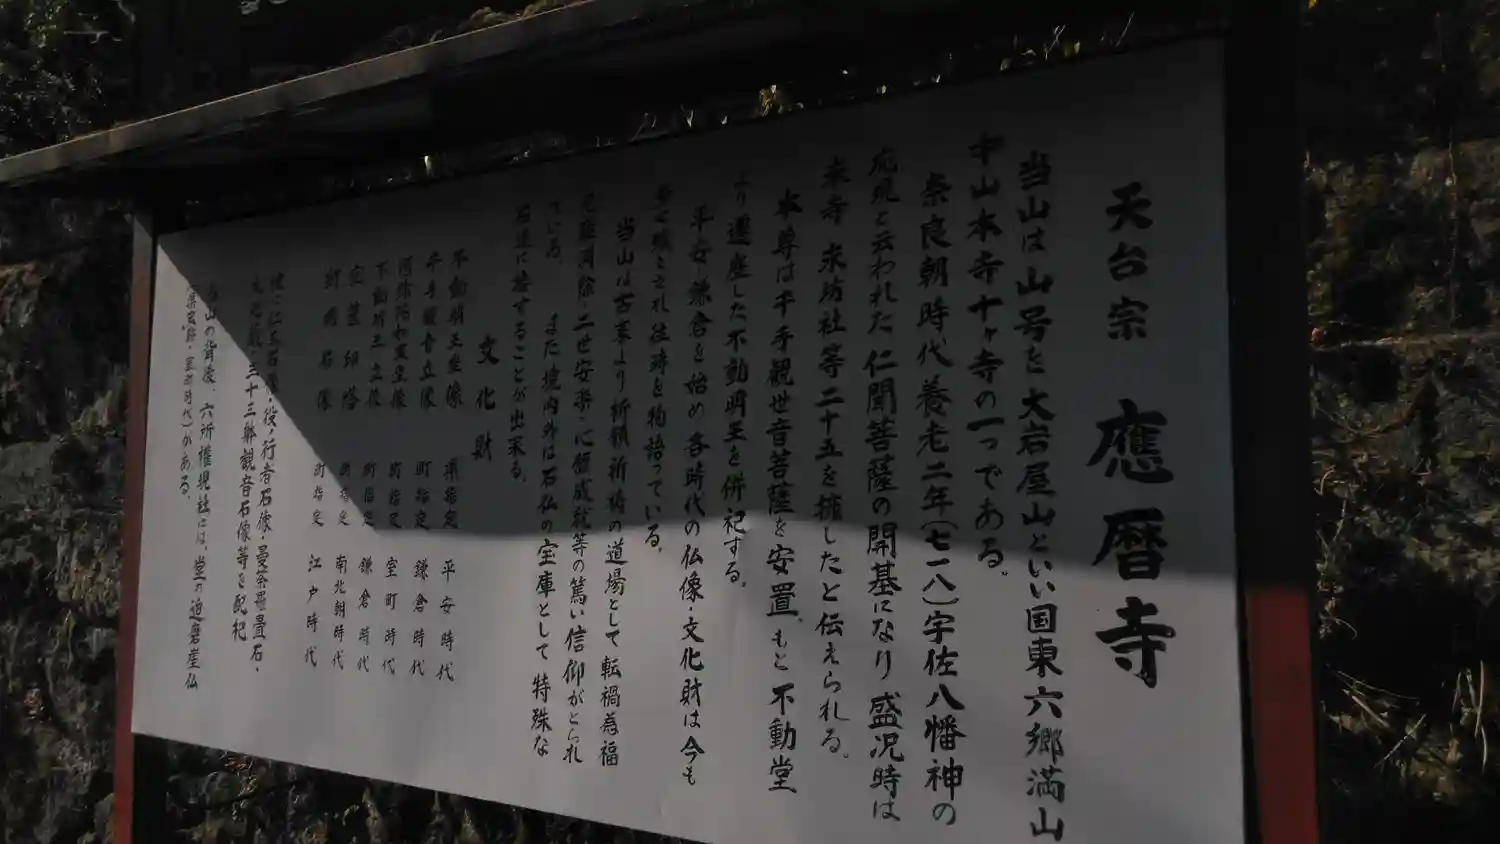 天台宗 應暦寺
当山は山号を大岩屋山といい国東六郷満山
中山本寺十ヶ寺の一つである。
奈良朝時代養老二年(七一八)宇佐八幡神の
応現と云われた仁聞菩薩の開基になり盛況時は
末寺 末坊社等二十五を擁したと伝えられる。
本尊は千手観世音菩薩を安置、もと不動堂
より遷座した不動明王を併祀する。
平安・鎌倉を始め各時代の仏像・文化財は今も
され往時を物語っている。
当山は古来より祈願祈祷の道場として転禍為福
消除・二世安楽・心願成就等の篤い信仰がとられ
ている。 また境内外は石仏の宝庫として特殊な
石造に接することが出来る。
文化財
不動明王坐像 県指定 平安時代
千手観音立像 町指定 鎌倉時代
町指定 室町時代
不動明王立像 町指定 鎌倉時代
宝篋印塔 町指定 南北朝時代
石像 町指定 江戸時代
他に仁王石像・役ノ行者石像・曼荼羅畳石・
三十三躰観音石像等を配祀
当山の背後、六所権現社には、堂の迫磨崖仏
(県史跡・室町時代)がある。